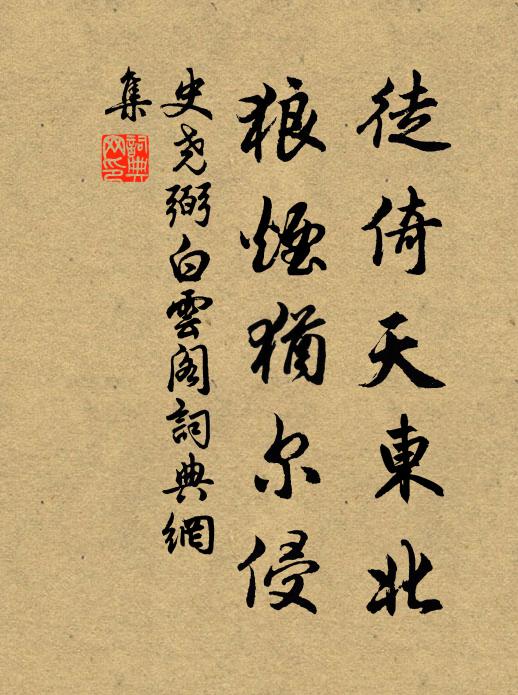 徒倚天東北
狼煙猶尔侵
史尧弼白雲阁詞典網
集
詞典网印